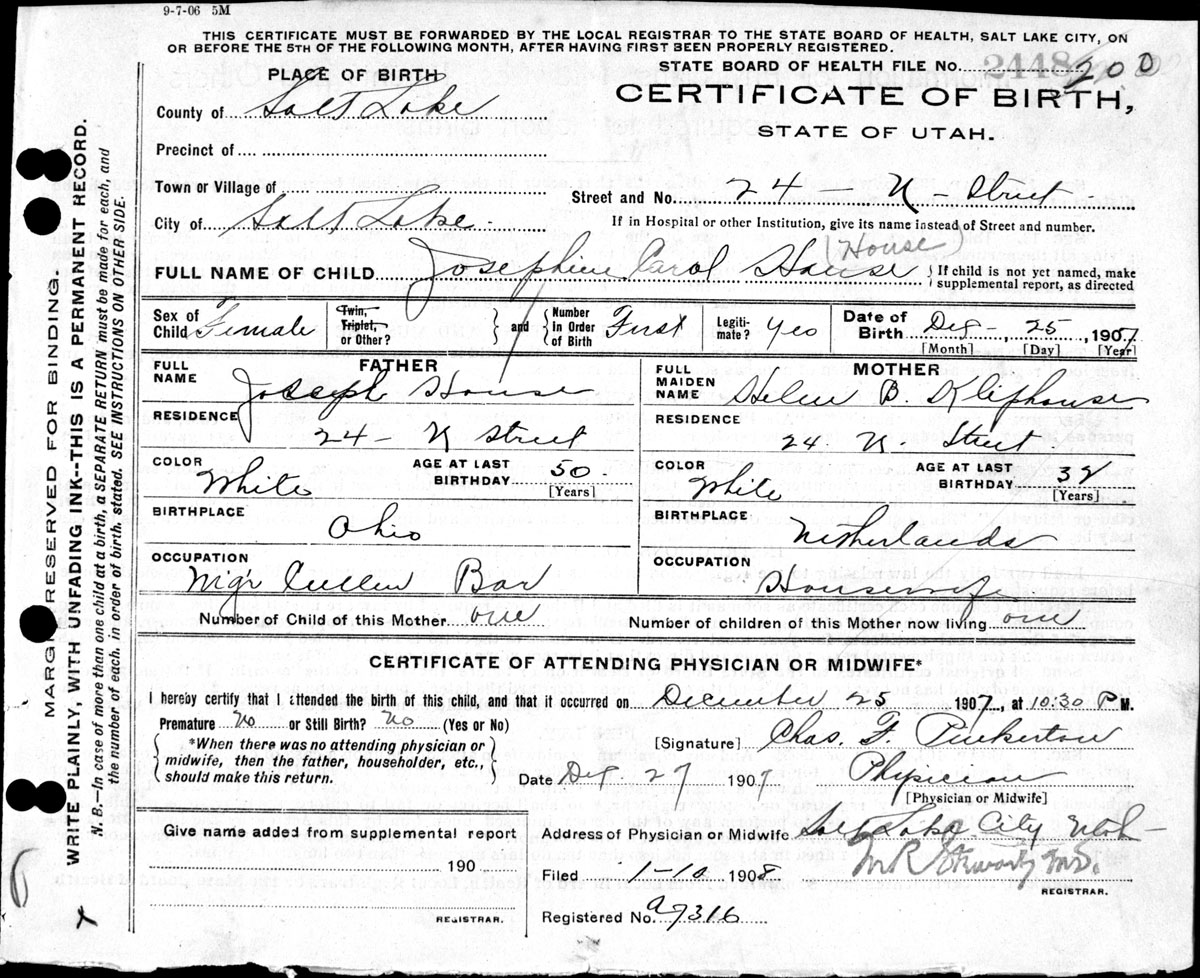 9-7-06 5M
THIS CERTIFICATE MUST BE FORWARDED BY THE LOCAL REGISTRAR TO THE STATE BOARD OF HEALTH, SALT LAKE CITY, ON
OR BEFORE THE 5TH OF THE FOLLOWING MONTH, AFTER HAVING FIRST BEEN PROPERLY REGISTERED.
PLACE OF BIRTH
STATE BOARD OF HEALTH FILE NO. 2448 200
County of Salt Lake
CERTIFICATE OF BIRTH,
STATE OF UTAH.
Precinct of
Town or Village of
Street and No. 24 - N - Street
City of Salt Lake
If in Hospital or other Institution, give its name instead of Street and number.
(House)
FULL NAME OF CHILD Josephine Carol House
{ If child is not yet named, make
supplemental report, as directed
Sex of Child Female
Twin, Triplet, or Other?
and
Number In Order of Birth First
Legitimate? Yes
Date of Birth Dec - 25, 1907
[Month] [Day] [Year]
FATHER
FULL NAME Joseph House
RESIDENCE
24 - N Street
COLOR White
AGE AT LAST BIRTHDAY 50
[Years]
BIRTHPLACE
Ohio
OCCUPATION
Mgr Cullen Bar
MOTHER
FULL MAIDEN NAME Helen B. Kliphouse
RESIDENCE
24 N. Street
COLOR White
AGE AT LAST BIRTHDAY 32
[Years]
BIRTHPLACE
Netherlands
OCCUPATION
Housewife
Number of Child of this Mother one
Number of children of this Mother now living one
CERTIFICATE OF ATTENDING PHYSICIAN OR MIDWIFE*
I hereby certify that I attended the birth of this child, and that it occurred on December 25 1907, at 10:30 P M.
Premature No or Still Birth? No (Yes or No)
{ *When there was no attending physician or
midwife, then the father, householder, etc.,
should make this return. }
[Signature] Chas. F. Pinkerton
Date Dec. 27 1907 Physician
[Physician or Midwife]
Give name added from supplemental report
190
REGISTRAR.
Address of Physician or Midwife Salt Lake City Utah
Filed 1-10 1908
M.D.
REGISTRAR.
Registered No. a7316
MARGIN RESERVED FOR BINDING.
WRITE PLAINLY, WITH UNFADING INK--THIS IS A PERMANENT RECORD.
N. B.—In case of more than one child at a birth, a SEPARATE RETURN must be made for each, and
the number of each, in order of birth, stated. SEE INSTRUCTIONS ON OTHER SIDE.